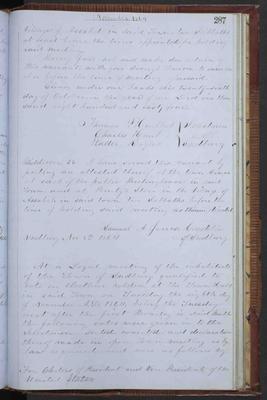 November 1864
287
Village of Assabet in said Town ten Sabbaths
at least before the time appointed for holding
said meeting.
Hereof fail not and make due return of
this warrant with your doings thereon to ourselves
at or before the time of meeting aforesaid.
Given under our hands this twenty sixth
day of October in the year of our Lord one thousand
eight hundred and sixty four.
Thomas P. Hurlbut Selectmen
Charles Hunt of
Sudbury
Middlesex SS. I have served this warrant by
posting an attested thereof at the Town House
at each of the public Meeting houses in said
Town and at Store in the Village of
Assabet in said town ten Sabbaths before the
time of holding said meeting
Samuel A. Jones Constable
Sudbury Nov 1864 of Sudbury
At a Legal meeting of the inhabitants
of the Town of Sudbury qualified to
vote in Elections holden at the Town House
in said Town on Tuesday the eighth day
of November A.D. 1864, being the Tuesday
next after the first Monday in said Month
the following votes were given in to the
Selectmen sorted counted and declaration
thereof made in open Town meeting as by
law required and were as follows viz
For Electors of President and Vice President of the
United States